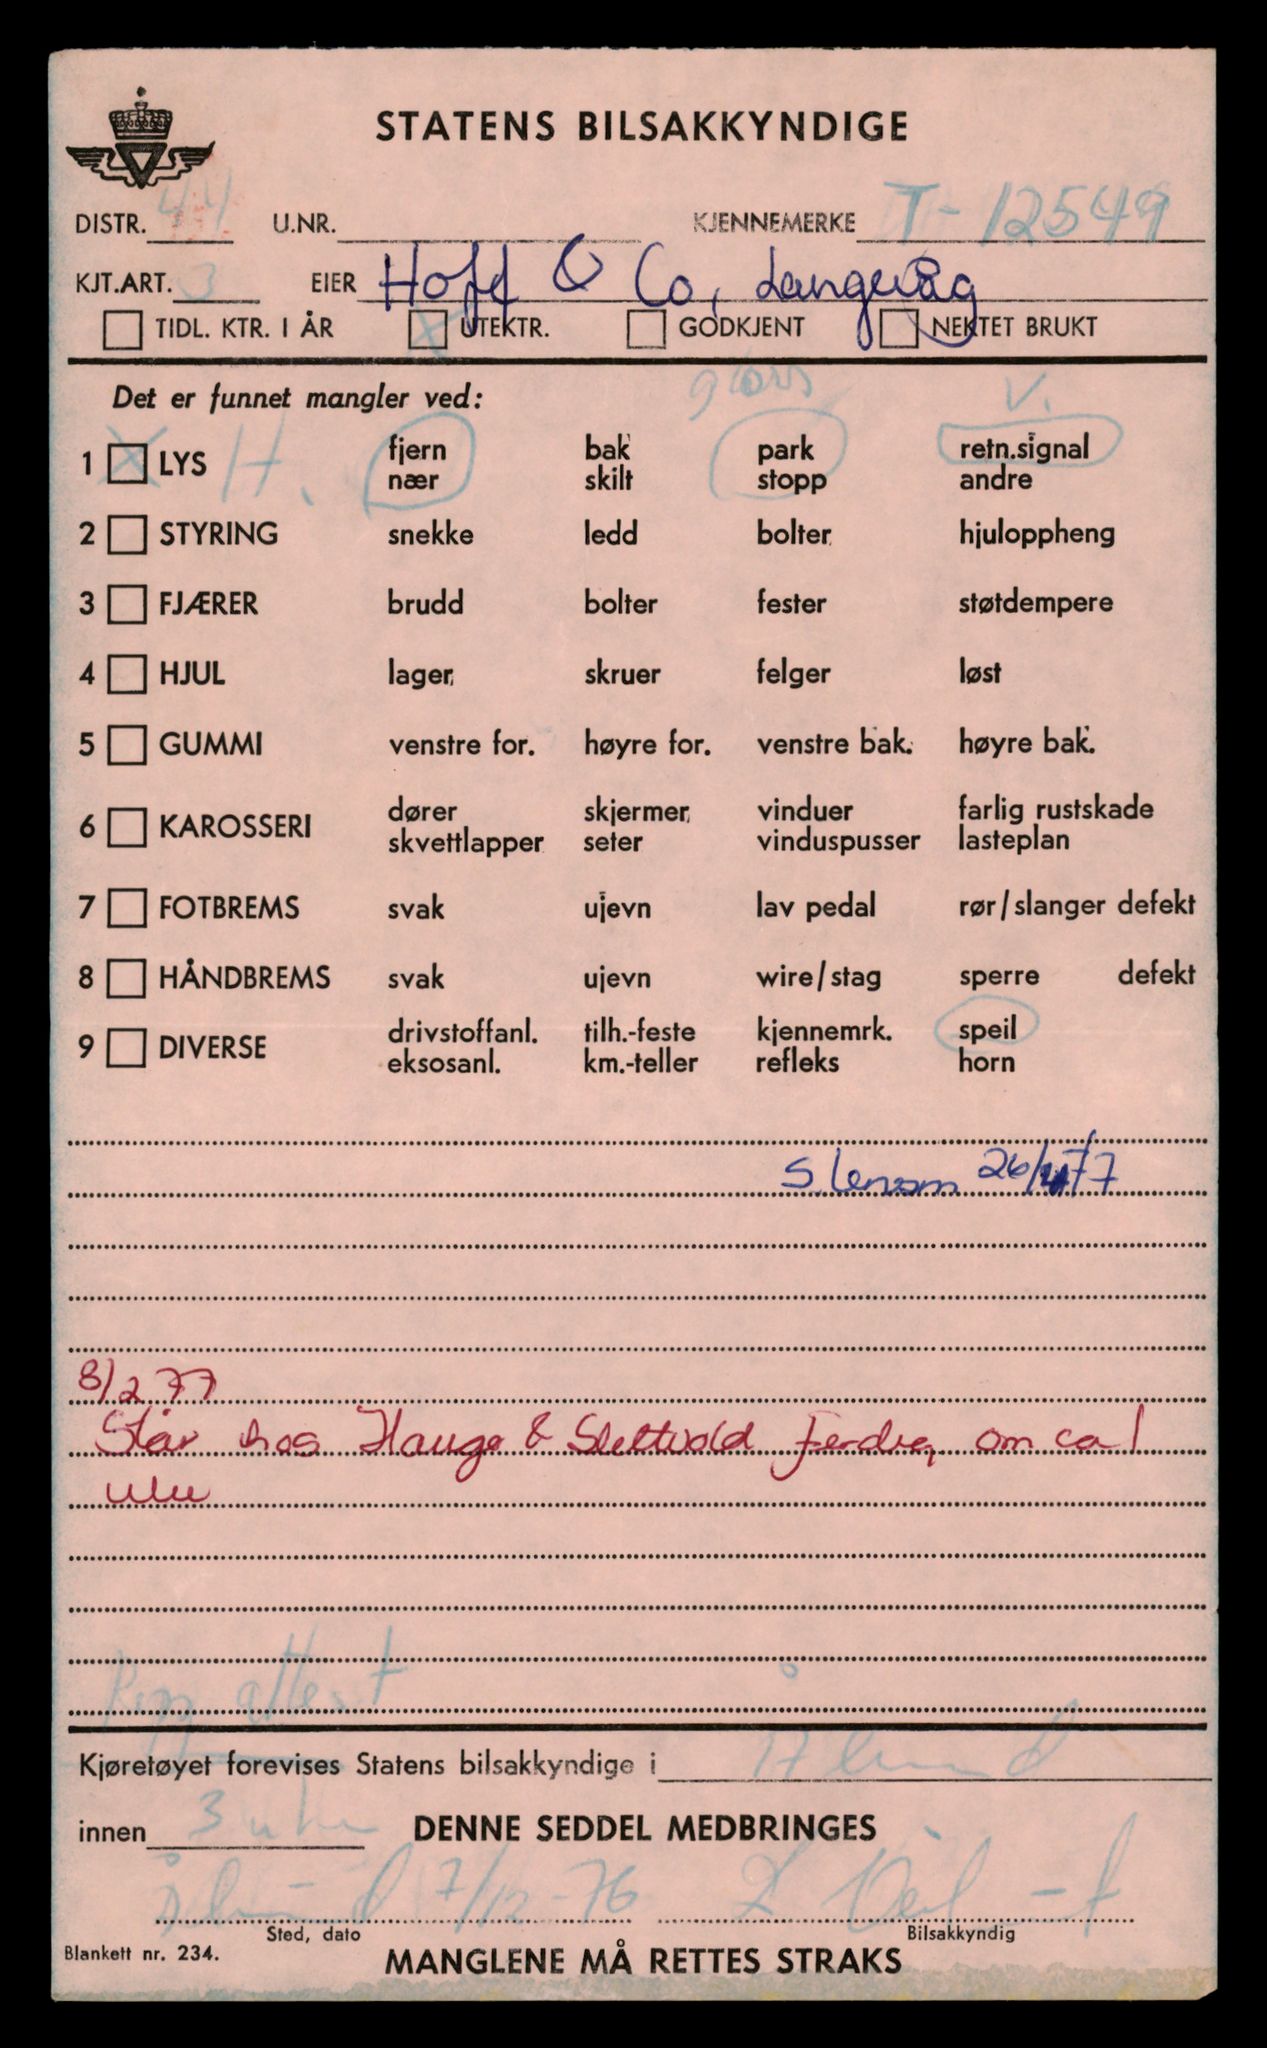 STATENS BILSAKKYNDIGE
DISTR. 44 U.NR. KJENNEMERKE T-12549
KJT.ART. 3 EIER Hoff & Co, Langevåg
TIDL. KTR. I ÅR X UTEKTR. GODKJENT NEKTET BRUKT
Det er funnet mangler ved: glass V.
1 X LYS H. fjern bak park retn.signal
nær skilt stopp andre
2 STYRING snekke ledd bolter hjuloppheng
3 FJÆRER brudd bolter fester støtdempere
4 HJUL lager skruer felger løst
5 GUMMI venstre for. høyre for. venstre bak. høyre bak.
6 KAROSSERI dører skjermer vinduer farlig rustskade
skvettlapper seter vinduspusser lasteplan
7 FOTBREMS svak ujevn lav pedal rør/slanger defekt
8 HÅNDBREMS svak ujevn wire/stag sperre defekt
9 DIVERSE drivstoffanl. tilh.-feste kjennemrk. speil
eksosanl. km.-teller refleks horn
26/4/77
8/2 77
Står hos Hauge & Slettvold ferdig om ca 1
uke
Rep attest
Kjøretøyet forevises Statens bilsakkyndige i Ålesund
innen 3 uker DENNE SEDDEL MEDBRINGES
Ålesund 7/12-76
Sted, dato Bilsakkyndig
Blankett nr. 234. MANGLENE MÅ RETTES STRAKS